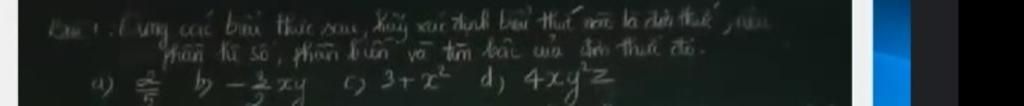 Câu 1: Cho các biểu thức sau, hãy xác định biểu thức nào là đơn thức, nêu
phần hệ số, phần biến và tìm bậc của đơn thức đó.
a) 2/5 b) -3/2 xy c) 3+x² d) 4xy²z